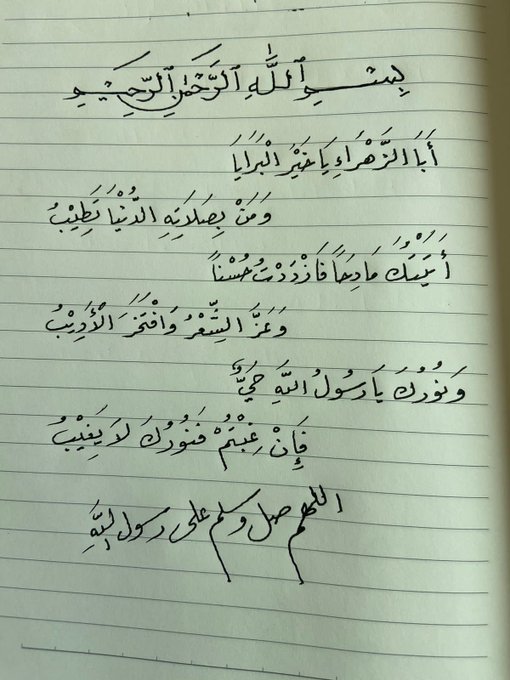 بِسْمِ ٱللَّهِ ٱلرَّحْمَٰنِ ٱلرَّحِيمِ
أَبَا الزَّهْرَاءِ يَا خَيْرَ الْبَرَايَا
وَمَنْ بِصَلَاتِهِ الدُّنْيَا تَطِيْبُ
أَتَيْتُكَ مَادِحًا فَازْدَدْتُ حُسْنًا
وَعَزَّ الشِّعْرُ وَافْتَخَرَ الْأَدِيْبُ
وَنُورُكَ يَا رَسُولُ اللَّهِ حَيٌّ
فَإِنْ غِبْتُمْ فَنُورُكَ لَا يَغِيْبُ
اللهم صل وسلم على رسول اللَّهِ